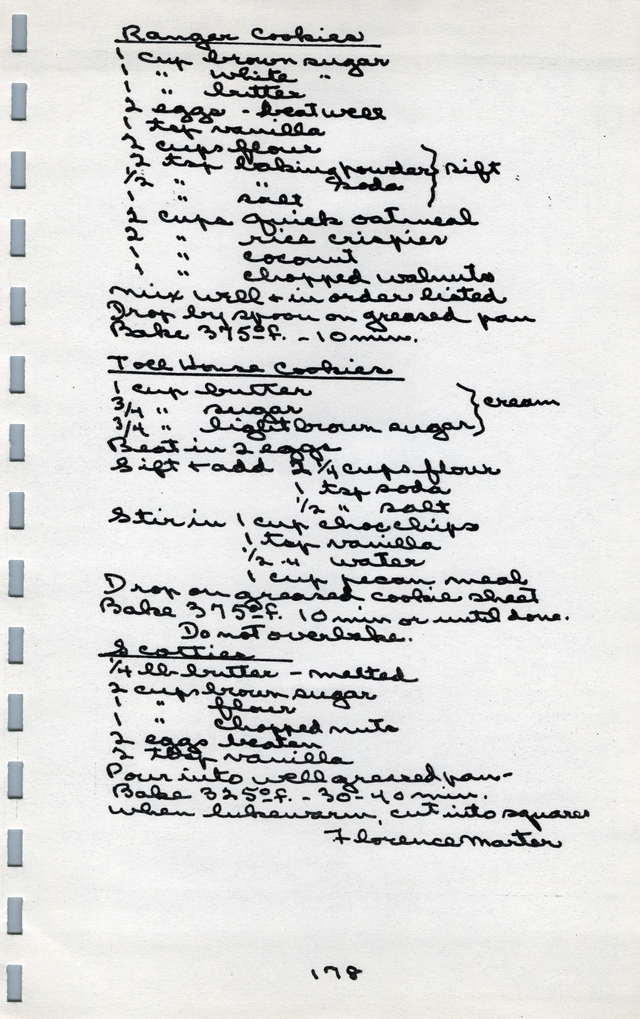 Ranger Cookies
1 cup brown sugar
1 " white "
1 " butter
2 eggs - beat well
1 tsp vanilla
2 cups flour
2 tsp baking powder } sift
1/2 " " soda
1 " salt
2 cups quick oatmeal
2 " rice crispies
1 " coconut
1 " chopped walnuts
Mix well + in order listed
Drop by spoon on greased pan
Bake 375º f. - 10 min.
Toll House Cookies
1 cup butter
3/4 " sugar } cream
3/4 " light brown sugar
Beat in 2 eggs
Sift + add 2 1/4 cups flour
1 tsp soda
1/2 " salt
Stir in 1 cup choc chips
1 tsp vanilla
1/2 " water
1 cup pecan meal
Drop on greased cookie sheet
Bake 375º f. 10 min or until done.
Do not overbake.
Scotties
1/4 lb butter - melted
2 cups brown sugar
1 " flour
1 " chopped nuts
2 eggs beaten
2 vanilla
Pour into well greased pan -
Bake 325º f. - 30-40 min.
When lukewarm, cut into squares
Florence Marter
178